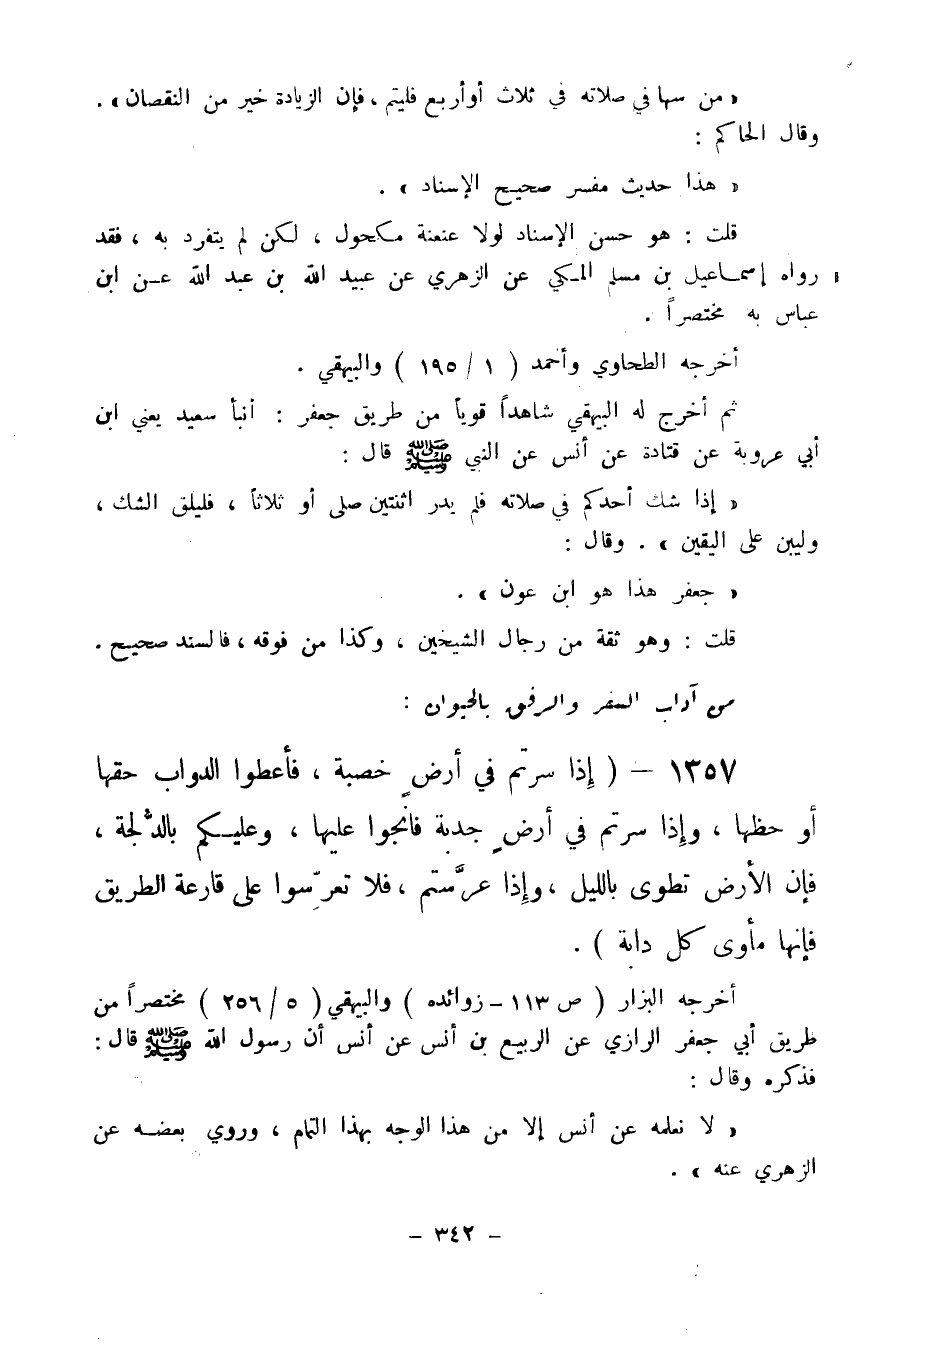 « من سها في صلاته في ثلاث أوأربع فليتم ، فإن الزيادة خير من النقصان » .
وقال الحاكم :
« هذا حديث مفسر صحيح الإسناد » .
قلت : هو حسن الإسناد لولا عنعنة مكحول ، لكن لم يتفرد به ، فقد
رواه إسماعيل بن مسلم المكي عن الزهري عن عبيد الله بن عبد الله عن ابن
عباس به مختصراً .
أخرجه الطحاوي وأحمد ( ١ / ١٩٥ ) والبيهقي .
ثم أخرج له البيهقي شاهداً قوياً من طريق جعفر : أنبأ سعيد يعني ابن
أبي عروبة عن قتادة عن أنس عن النبي ﷺ قال :
« إذا شك أحدكم في صلاته فلم يدر اثنتين صلى أو ثلاثاً ، فليلق الشك ،
وليبن على اليقين » . وقال :
« جعفر هذا هو ابن عون » .
قلت : وهو ثقة من رجال الشيخين ، وكذا من فوقه ، فالسند صحيح .
من آداب السفر والرفق بالحيوان :
١٣٥٧ – ( إِذا سرتم في أرضٍ خصبة ، فأعطوا الدواب حقها
أو حظها ، وإِذا سرتم في أرضٍ جدبة فانجوا عليها ، وعليكم بالدُّلجة ،
فإن الأرض تطوى بالليل ، وإِذا عرَّستم ، فلا تعرّسوا على قارعة الطريق
فإنها مأوى كل دابة ) .
أخرجه البزار ( ص ١١٣ - زوائده ) والبيهقي ( ٥ / ٢٥٦ ) مختصراً من
طريق أبي جعفر الرازي عن الربيع بن أنس عن أنس أن رسول الله ﷺ قال :
فذكره وقال :
« لا نعلمه عن أنس إلا من هذا الوجه بهذا التمام ، وروي بعضه عن
الزهري عنه » .
– ٣٤٢ –